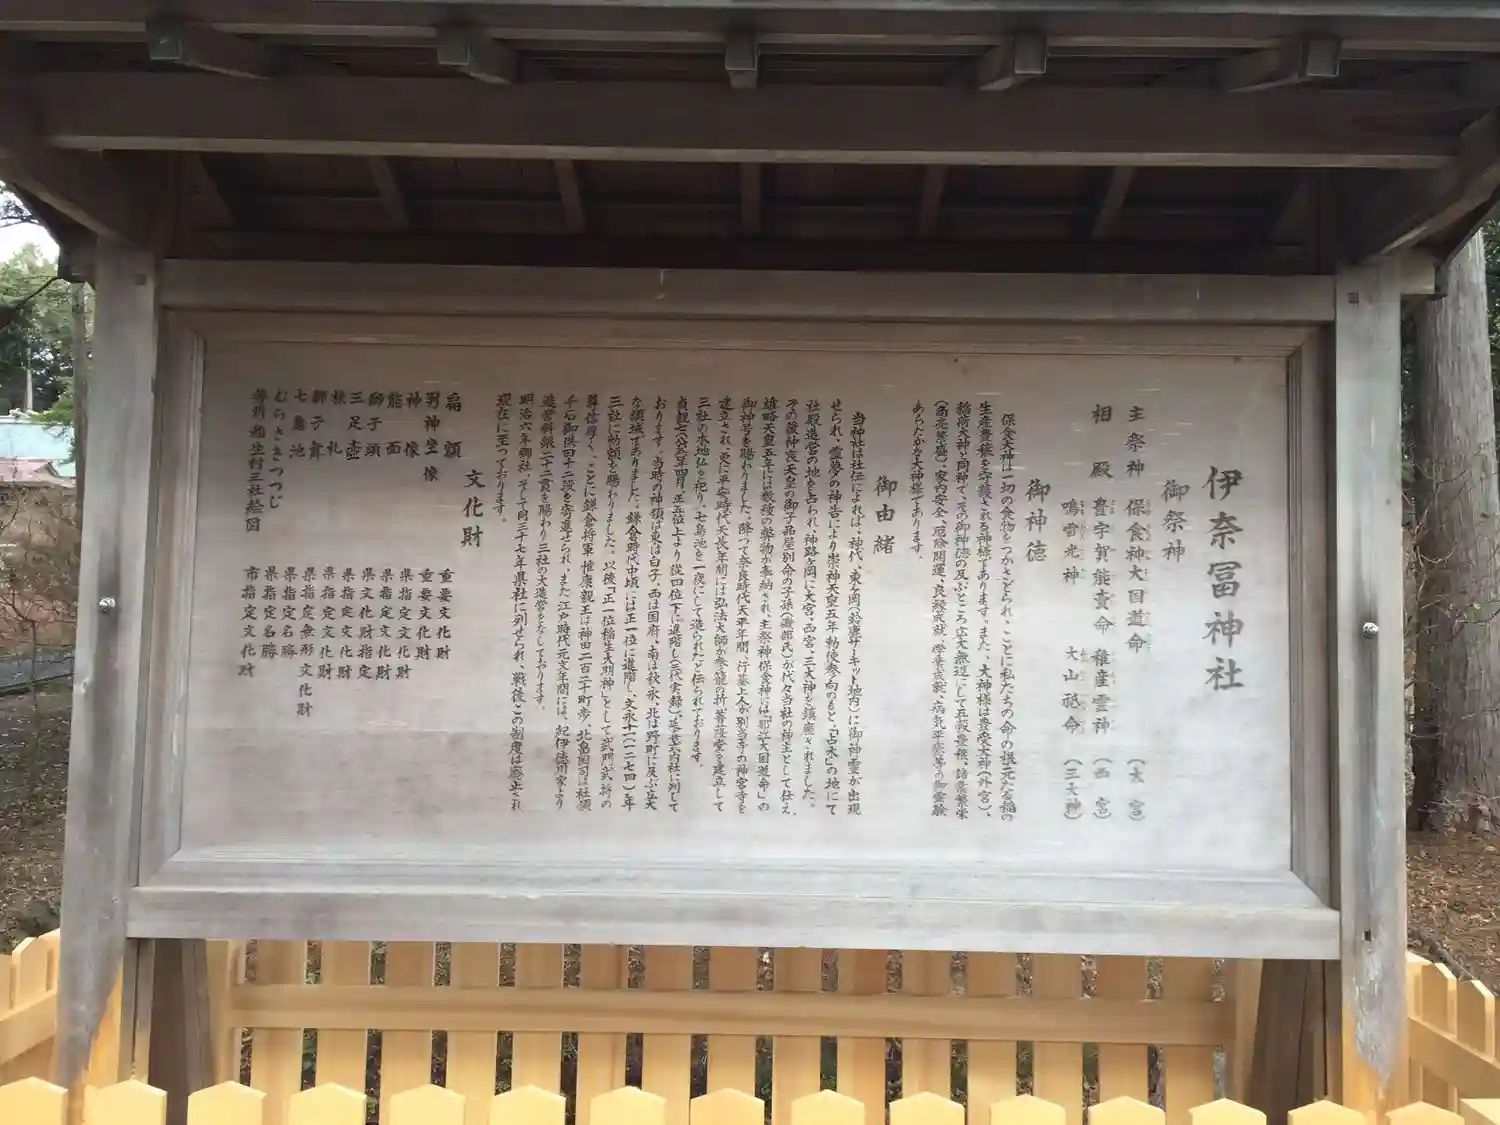 伊奈冨神社
御祭神
主祭神 保食神 大国道命 (大宮)
相殿 豊宇賀能売命 稚産霊神 (西宮)
鳴雷光神 大山祗命 (三大神)
御神徳
保食大神は一切の食物をつかさどられ、ことに私たちの命の根元たる稲の
生産豊穣を守護される神様であります。また、大神様は豊受大神(外宮)、
稲荷大神と同神で、その御神徳の及ぶところ広大無辺にして五穀豊穣、諸産繁栄
(商売繁盛)、家内安全、厄除開運、良縁成就、学業成就、病気平癒等の御霊験
あらたかな大神様であります。
御由緒
当神社は社伝によれば、神代、東ヶ岡(鈴鹿サーキット地内)に御神霊が出現
せられ、霊夢の神告により崇神天皇五年勅使参向のもと、「占木」の地にて
社殿造営の地を占われ、神路ヶ岡に大宮、西宮、三大神を鎮座されました。
その後神
雄略天皇五年には数種の幣物が奉納され、主祭神保食神には「那江大国道命」の
御神号を賜わりました。降って奈良時代天平年間、行基上人が別当寺の神宮寺を
建立され、更に平安時代天長年間には弘法大師が参籠の折、菩
三社の本地仏を祀り、七島池を一夜にして造られたと伝られております。
貞観七(八六五)年四月、正五位上より従四位下に進階し(三代実録)、延喜式内社に列して
おります。当時の神領は東は白子、西は国府、南は秋永、北は野町に及ぶ広大
な領域でありました。鎌倉時代中頃には正一位に進階し、文永十一(一二七四)年
三社に勅額を賜わりました。以後「正一位稲生大明神」として武門武将の
尊信厚く、ことに鎌倉将軍惟康親王は神田二百二十町歩、北畠国司は社領
千石御供田十二段を寄進せられ、また江戸時代元文年間には、紀伊徳川家より
造営料銀二十二貫を賜わり三社の大造営をなしております。
明治六年郷社、そして同三十七年県社に列せられ、戦後、この制度は廃止され
現在に至っております。
文化財
扁額 重要文化財
男神坐像 重要文化財
神像 県指定文化財
能面 県指定文化財
獅子頭 県文化財指定
三足壺 県指定文化財
棟札 県指定文化財
獅子舞 県指定無形文化財
七島池 県指定名勝
むらさきつつじ 県指定名勝
勢州稲生村三社絵図 市指定文化財